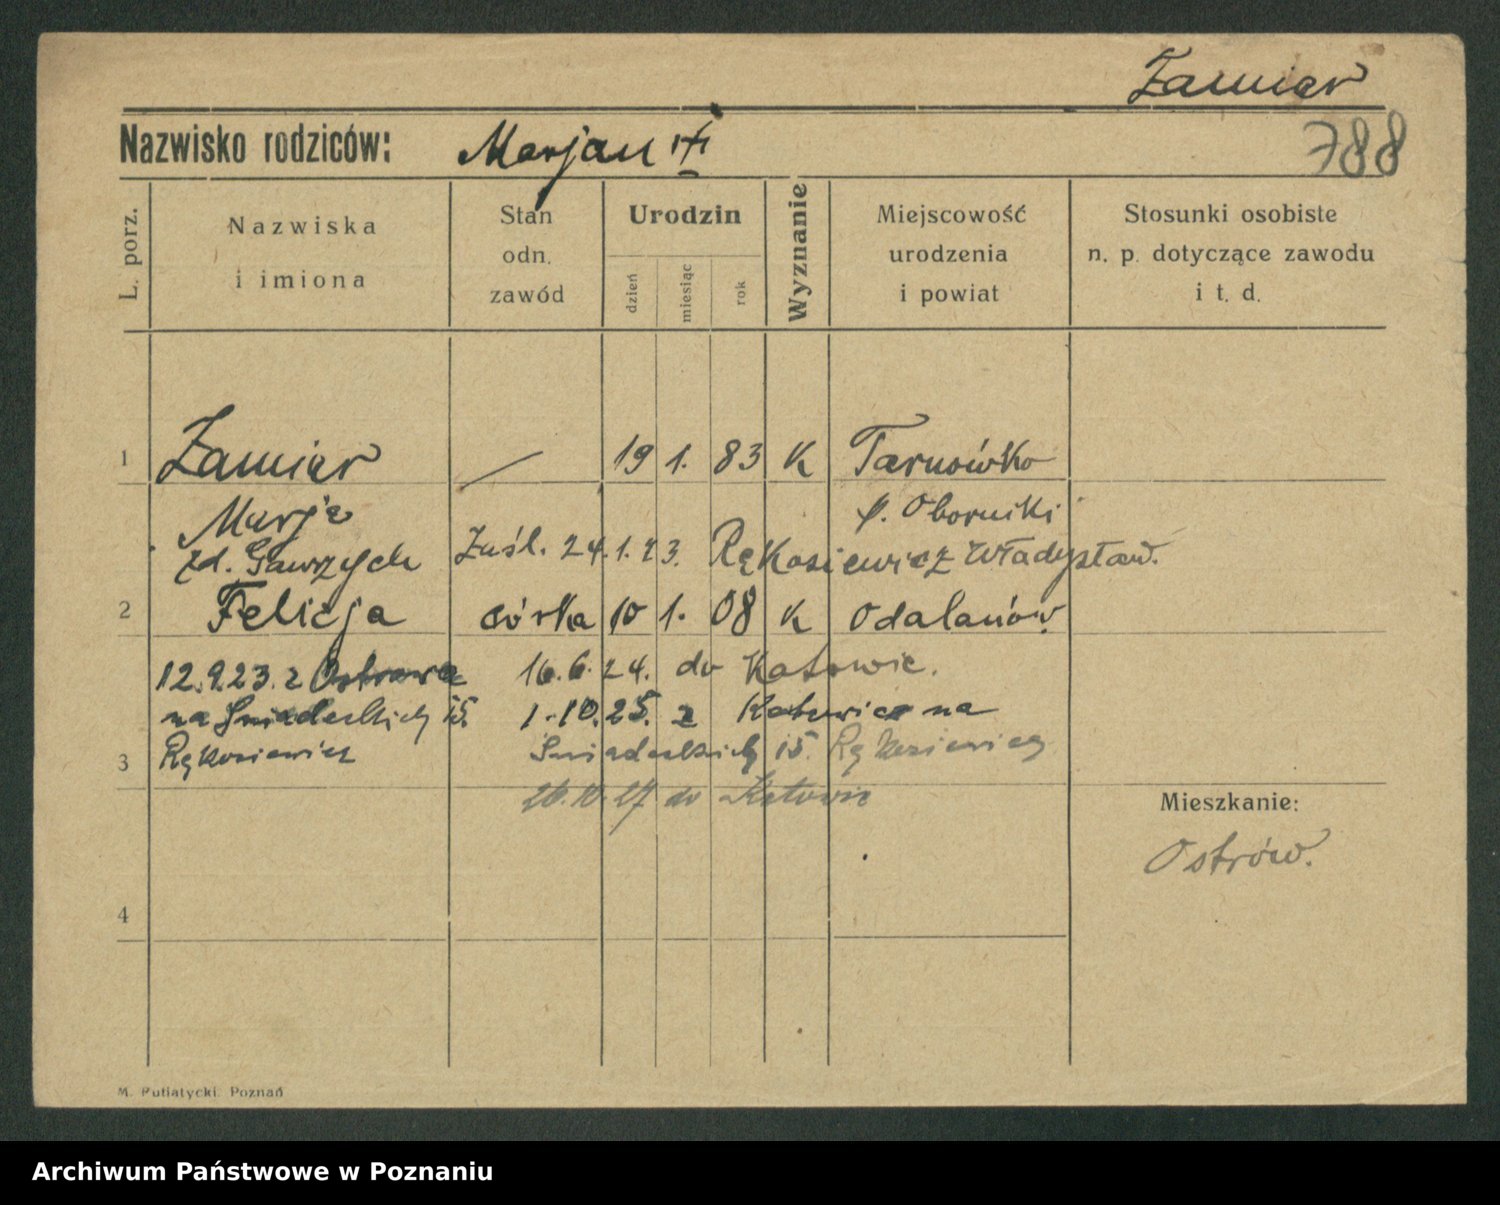 Zamiar
Nazwisko rodziców: Marjan
788
L. porz.
Nazwiska i imiona
Stan odn. zawód
Urodzin
dzień
miesiąc
rok
Wyznanie
Miejscowość urodzenia i powiat
Stosunki osobiste n. p. dotyczące zawodu i t. d.
1 Zamiar — 19 1. 83 K Tarnówko
Marja p. Oborniki
zd. Gawrzych Zaśl. 24.1.23. Rękosiewicz Władysław.
2 Felicja córka 10 1. 08 K Odalanów
12.9.23. z Ostrowa 16.6.24. do Katowic.
na Śniadeckich 15. 1.10.25. z Katowic na
3 Rękosiewicz Śniadeckich 15. Rękosiewicz
26.10.27 do Katowic
Mieszkanie:
Ostrów.
4
M. Putiatycki. Poznań
Archiwum Państwowe w Poznaniu